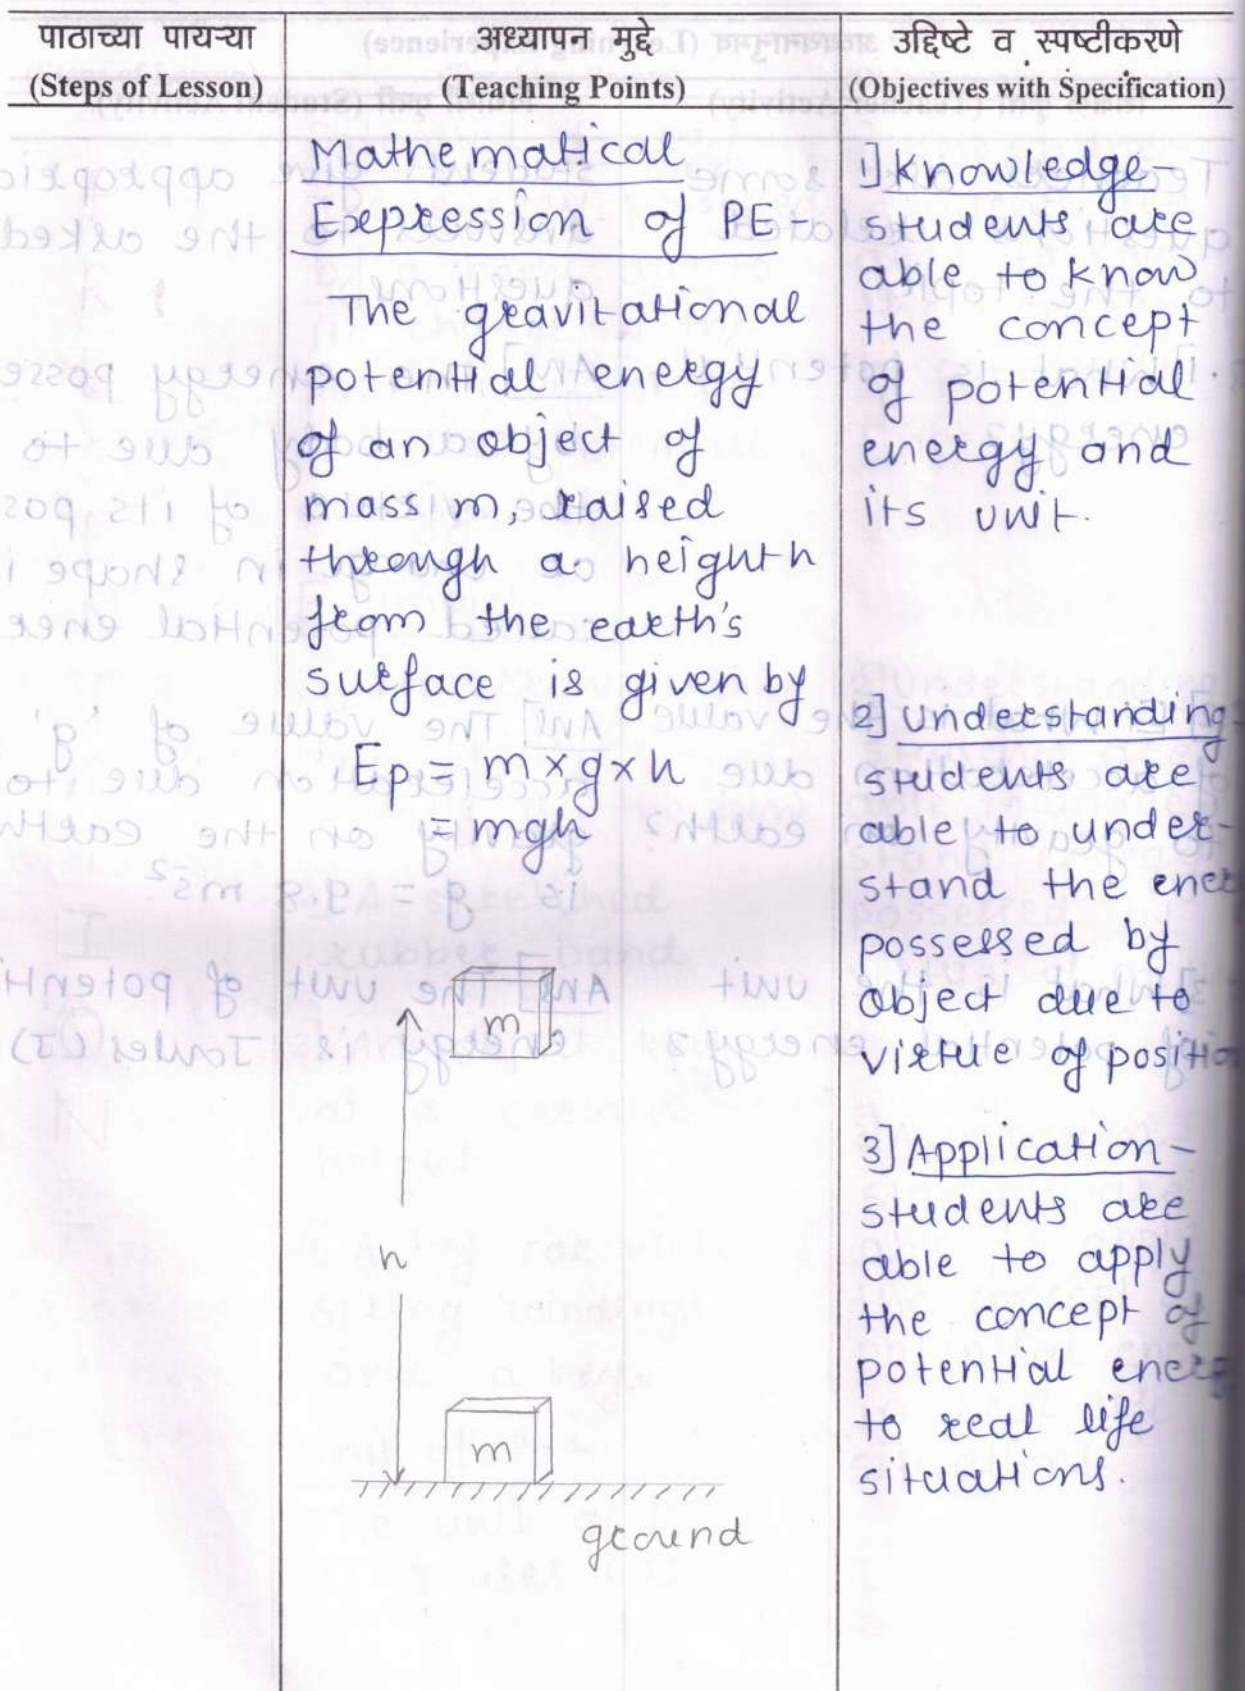 पाठाच्या पायऱ्या
(Steps of Lesson)
अध्यापन मुद्दे
(Teaching Points)
उद्दिष्टे व स्पष्टीकरणे
(Objectives with Specification)
Mathematical
Expression of PE-
The gravitational
potential energy
of an object of
mass m, raised
through a heighth
from the earth's
surface is given by
Ep = m×g×h
= mgh
m
h
m
ground
1] Knowledge-
students are
able to know
the concept
of potential
energy and
its unit.
2] Understanding-
students are
able to under-
stand the
possessed by
object due to
virtue of
3] Application-
students are
able to apply
the concept of
potential
to real life
situations.